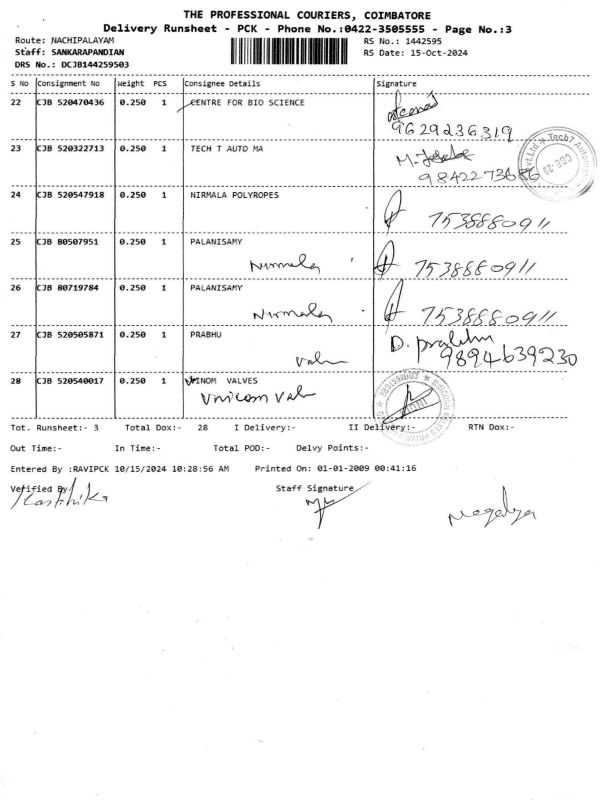 THE PROFESSIONAL COURIERS, COIMBATORE
Delivery Runsheet - PCK - Phone No.:0422-3505555 - Page No.:3
Route: NACHIPALAYAM RS No.: 1442595
Staff: SANKARAPANDIAN RS Date: 15-Oct-2024
DRS No.: DCJB144259503
S No Consignment No Weight PCS Consignee Details Signature
22 CJB 520470436 0.250 1 CENTRE FOR BIO SCIENCE
9629236319
23 CJB 520322713 0.250 1 TECH T AUTO MA
9842273686
24 CJB 520547918 0.250 1 NIRMALA POLYROPES
7538880911
25 CJB 80507951 0.250 1 PALANISAMY
Nirmala 7538880911
26 CJB 80719784 0.250 1 PALANISAMY
Nirmala 7538880911
27 CJB 520505871 0.250 1 PRABHU D. prabhu
9894639230
28 CJB 520540017 0.250 1 VINOM VALVES
Tot. Runsheet:- 3 Total Dox:- 28 I Delivery:- II Delivery:- RTN Dox:-
Out Time:- In Time:- Total POD:- Delvy Points:-
Entered By :RAVIPCK 10/15/2024 10:28:56 AM Printed On: 01-01-2009 00:41:16
Verified By Staff Signature
Karthika